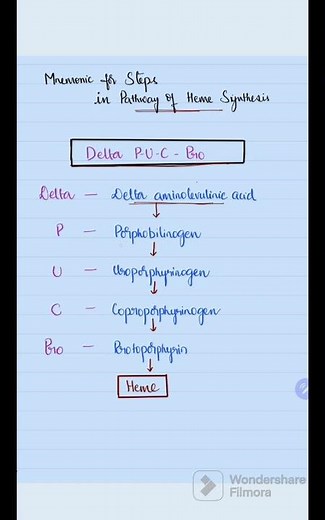 Mnemonic for Steps
in Pathway of Heme Synthesis
Delta P-U-C-Pro
Delta — Delta aminolevulinic acid
P — Porphobilinogen
U — Uroporphyrinogen
C — Coproporphyrinogen
Pro — Protoporphyrin
Heme
Wondershare
Filmora